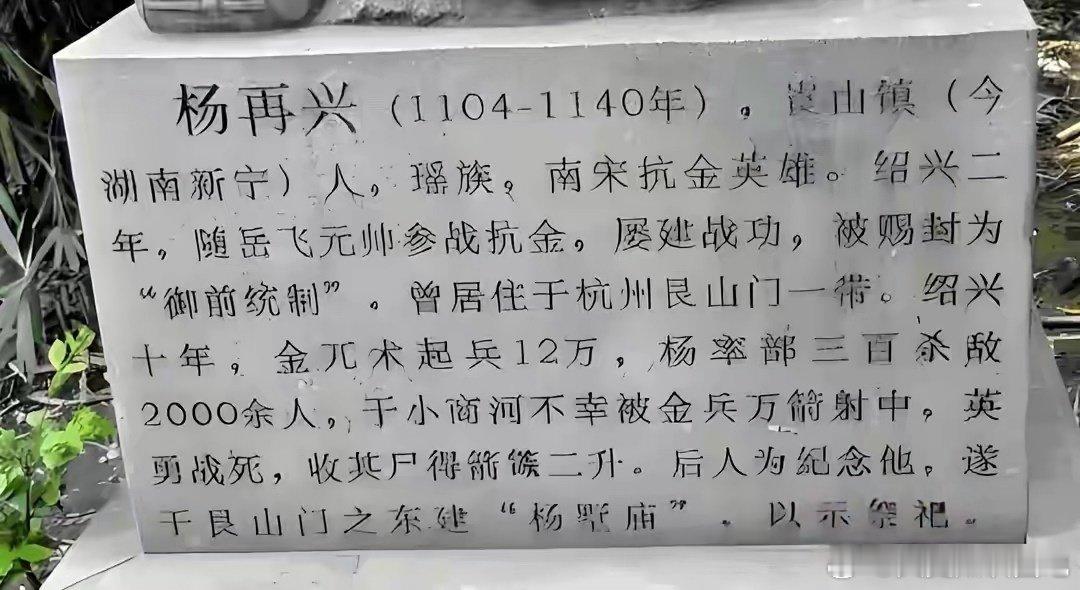 杨再兴（1104-1140年），崀山镇（今
湖南新宁）人，瑶族，南宋抗金英雄。绍兴二
年，随岳飞元帅参战抗金，屡建战功，被赐封为
“御前统制”。曾居住于杭州艮山门一带。绍兴
十年，金兀术起兵12万，杨率部三百杀敌
2000余人，于小商河不幸被金兵万箭射中，英
勇战死，收其尸得箭簇二升。后人为纪念他，遂
于艮山门之东建“杨墅庙”，以示祭祀。